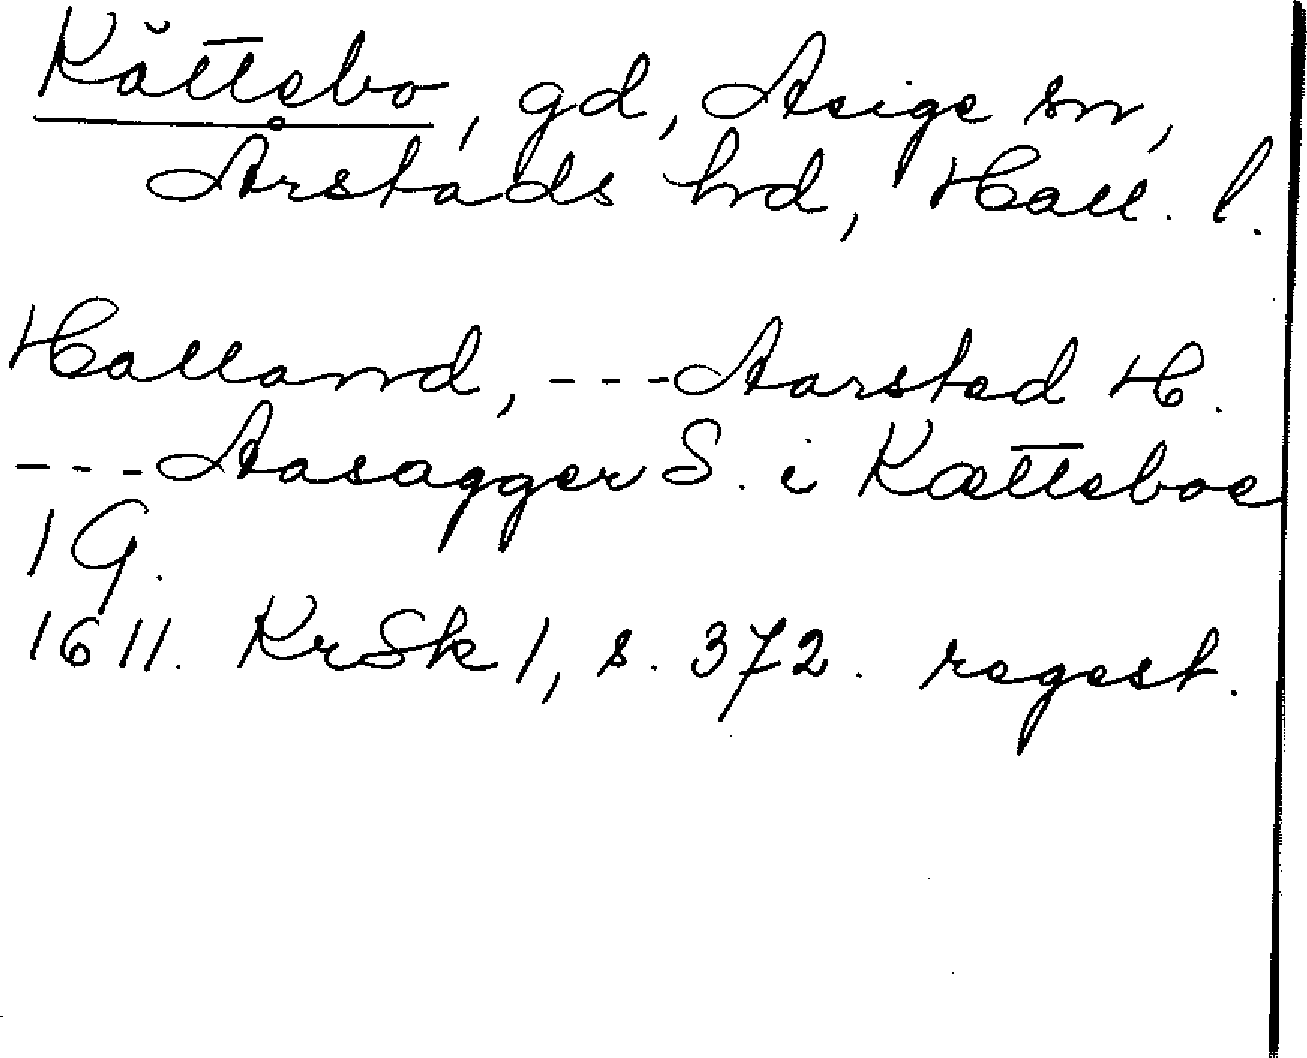 Kättebo, gd, Asige sn,
Årstads hrd, Hall. l.
Halland, ---Aarsted H.
---Aasagger S. i Kætteboe
1 G.
1611. KrSk 1, s. 372. regest.